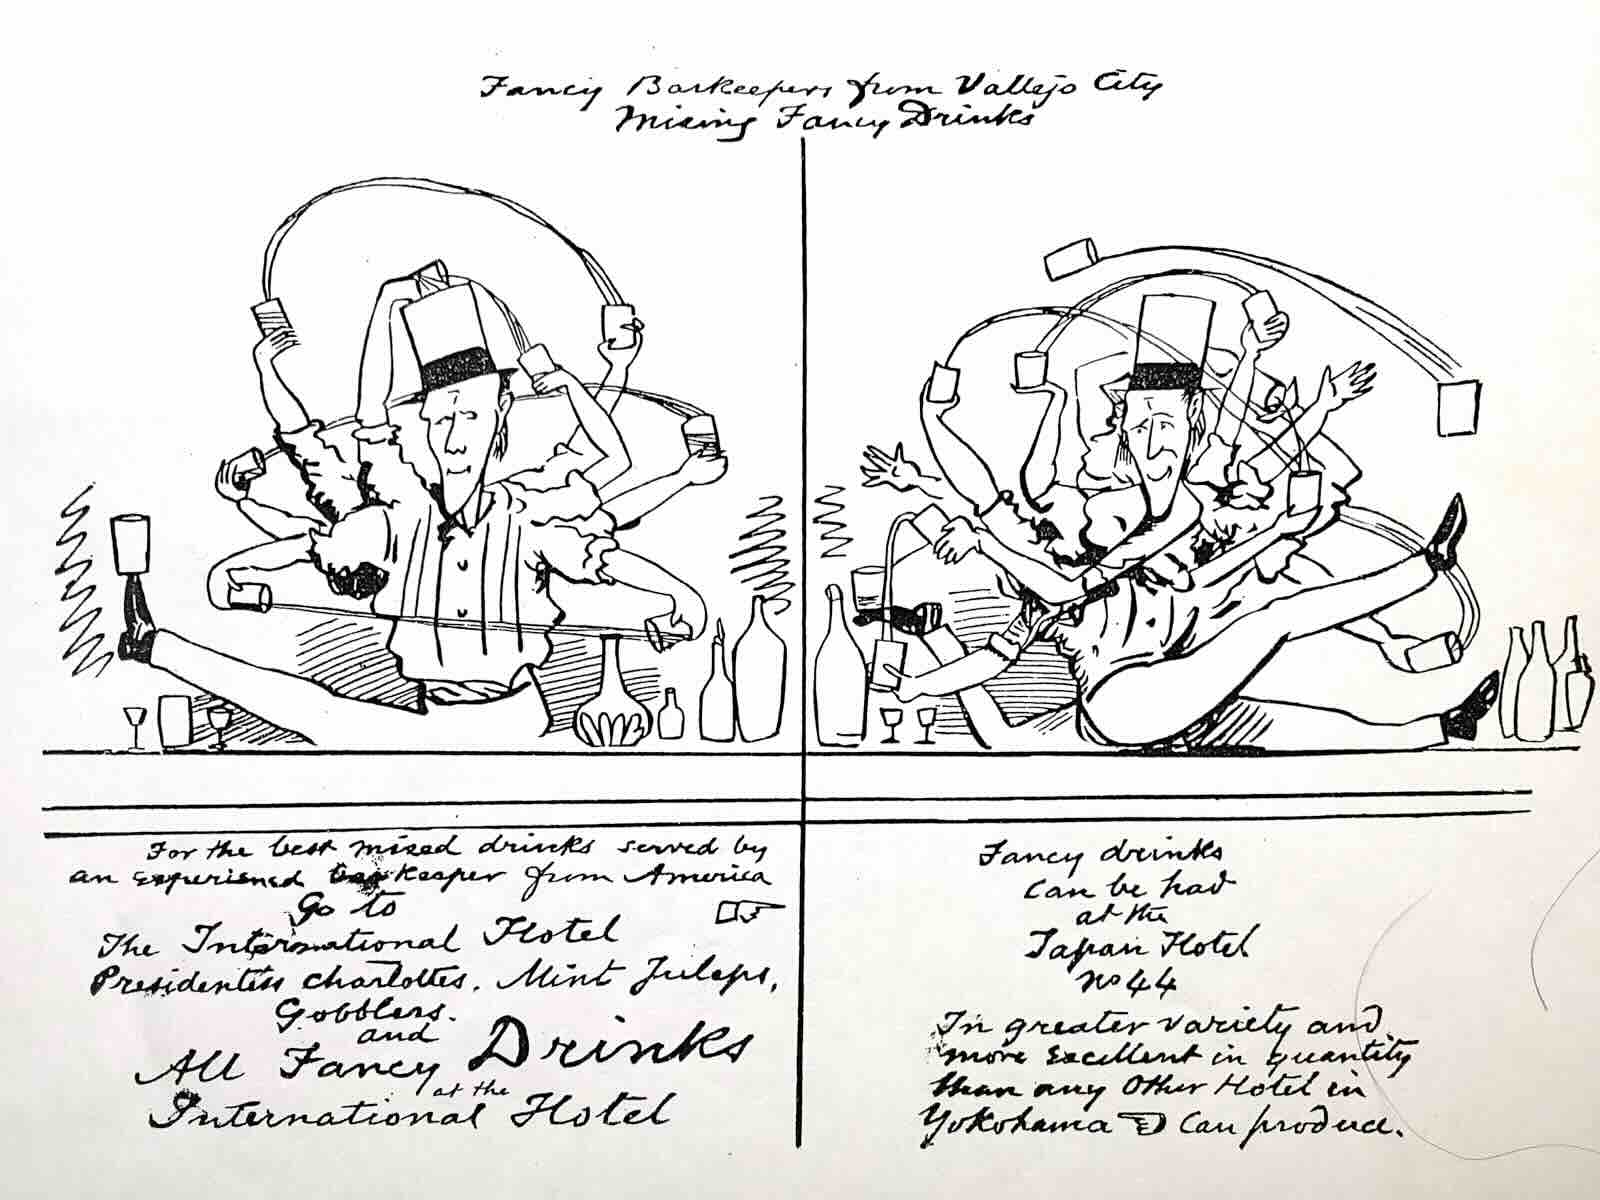 Fancy Barkeepers from Vallejo City
Mixing Fancy Drinks
For the best mixed drinks served by
an experienced barkeeper from America
Go to
The International Hotel
Presidentess charlottes. Mint Juleps,
Gobblers.
and
All Fancy Drinks
at the
International Hotel
Fancy drinks
can be had
at the
Japan Hotel
No 44
In greater variety and
more excellent in quantity
than any Other Hotel in
Yokohama Can produce.